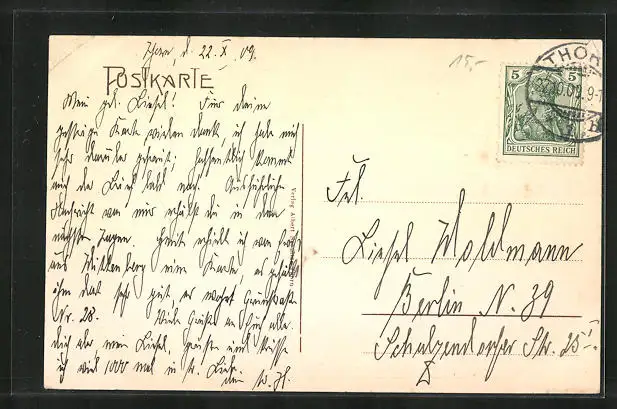 Thorn, d. 22. X. 09.
15,-
POSTKARTE
Mein gel. Liesel! Für deine
gestrige Karte vielen Dank, ich habe mich
sehr darüber gefreut; hoffentlich kommt
auch der Brief bald nach. Ausführliche
Nachricht von mir erhältst du in den
nächsten Tagen. Heute erhielt ich von
aus Wittenberg eine Karte, es gefällt
ihm dort sehr gut, er wohnt
Nr. 28. Viele Grüße an Euch alle
dich aber mein Liesel, grüßen und küsse
ich viel 1000 mal in
dein
Verlag Albert
THORN
5 5
DEUTSCHES REICH
Frl.
Liesel Woldmann
Berlin N. 39
Schulzendorfer Str. 25 I.